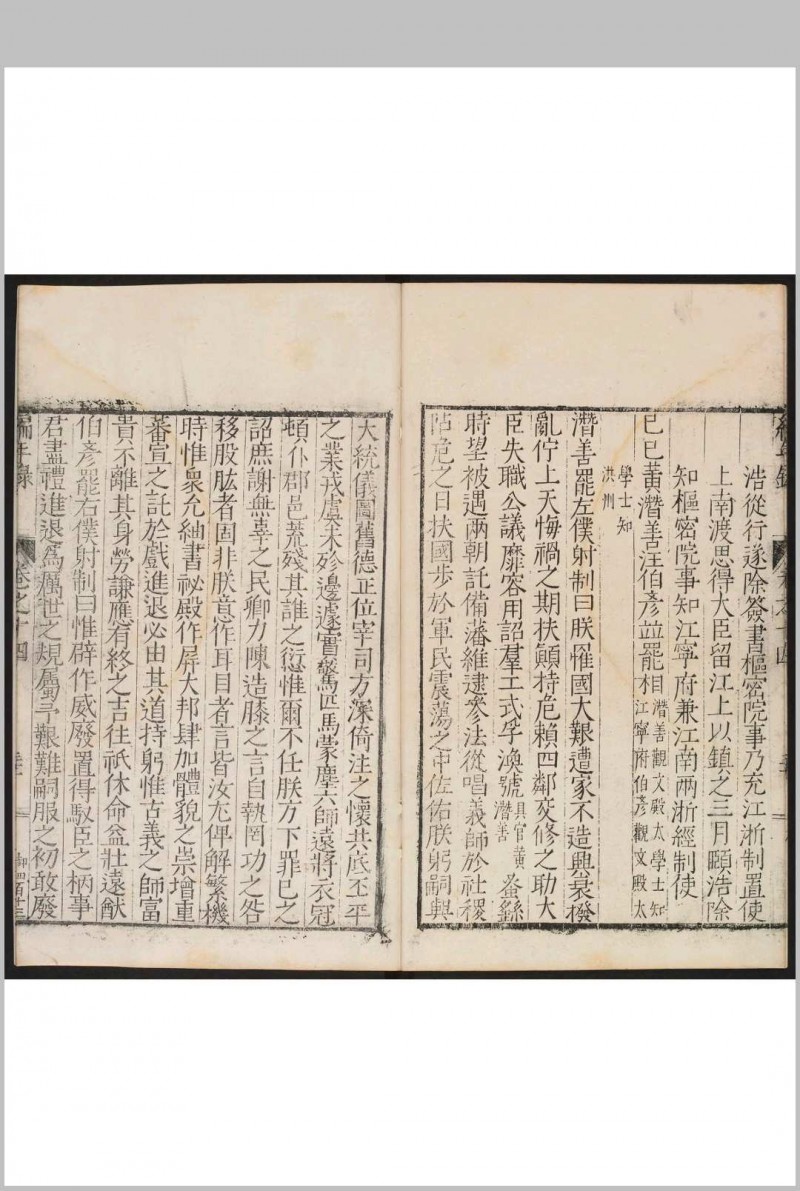 浩從行遂除簽書樞密院事乃充江浙制置使
上南渡思得大臣留江上以鎮之三月頤浩除
知樞密院事知江寧府兼江南兩浙經制使
己巳黃潛善汪伯彥並罷相潛善觀文殿大學士知江寧府伯彥觀文殿大
學士知洪州
潛善罷左僕射制曰朕罹國大艱遭家不造興衰撥
亂佇上天悔禍之期扶顛持危賴四鄰交修之助大
臣失職公議靡容用詔羣工式孚渙號具官黃潛善蚤繇
時望被遇兩朝託備藩維逮參法從唱義師於社稷
阽危之日扶國步於軍民震蕩之中佐佑朕躬嗣興
編年錄 卷之十四
大統儀圖舊德正位宰司方深倚注之懷共底丕平
之業戎虜未殄邊遽實驚匹馬蒙塵六師遠將衣冠
頓仆郡邑荒殘其誰之愆惟爾不任朕方下罪己之
詔庶謝無辜之民卿力陳造膝之言自執罔功之咎
移股肱者固非朕意作耳目者言皆汝尤俾解繁機
時惟衆允紬書祕殿作屏大邦肆加體貌之崇增重
蕃宣之託於戲進退必由其道持躬惟古義之師富
貴不離其身勞謙應有終之吉往祇休命益壯遠猷
伯彥罷右僕射制曰惟辟作威廢置得馭臣之柄事
君盡禮進退為厲世之規屬予艱難嗣服之初敢廢
編年錄 卷之十四